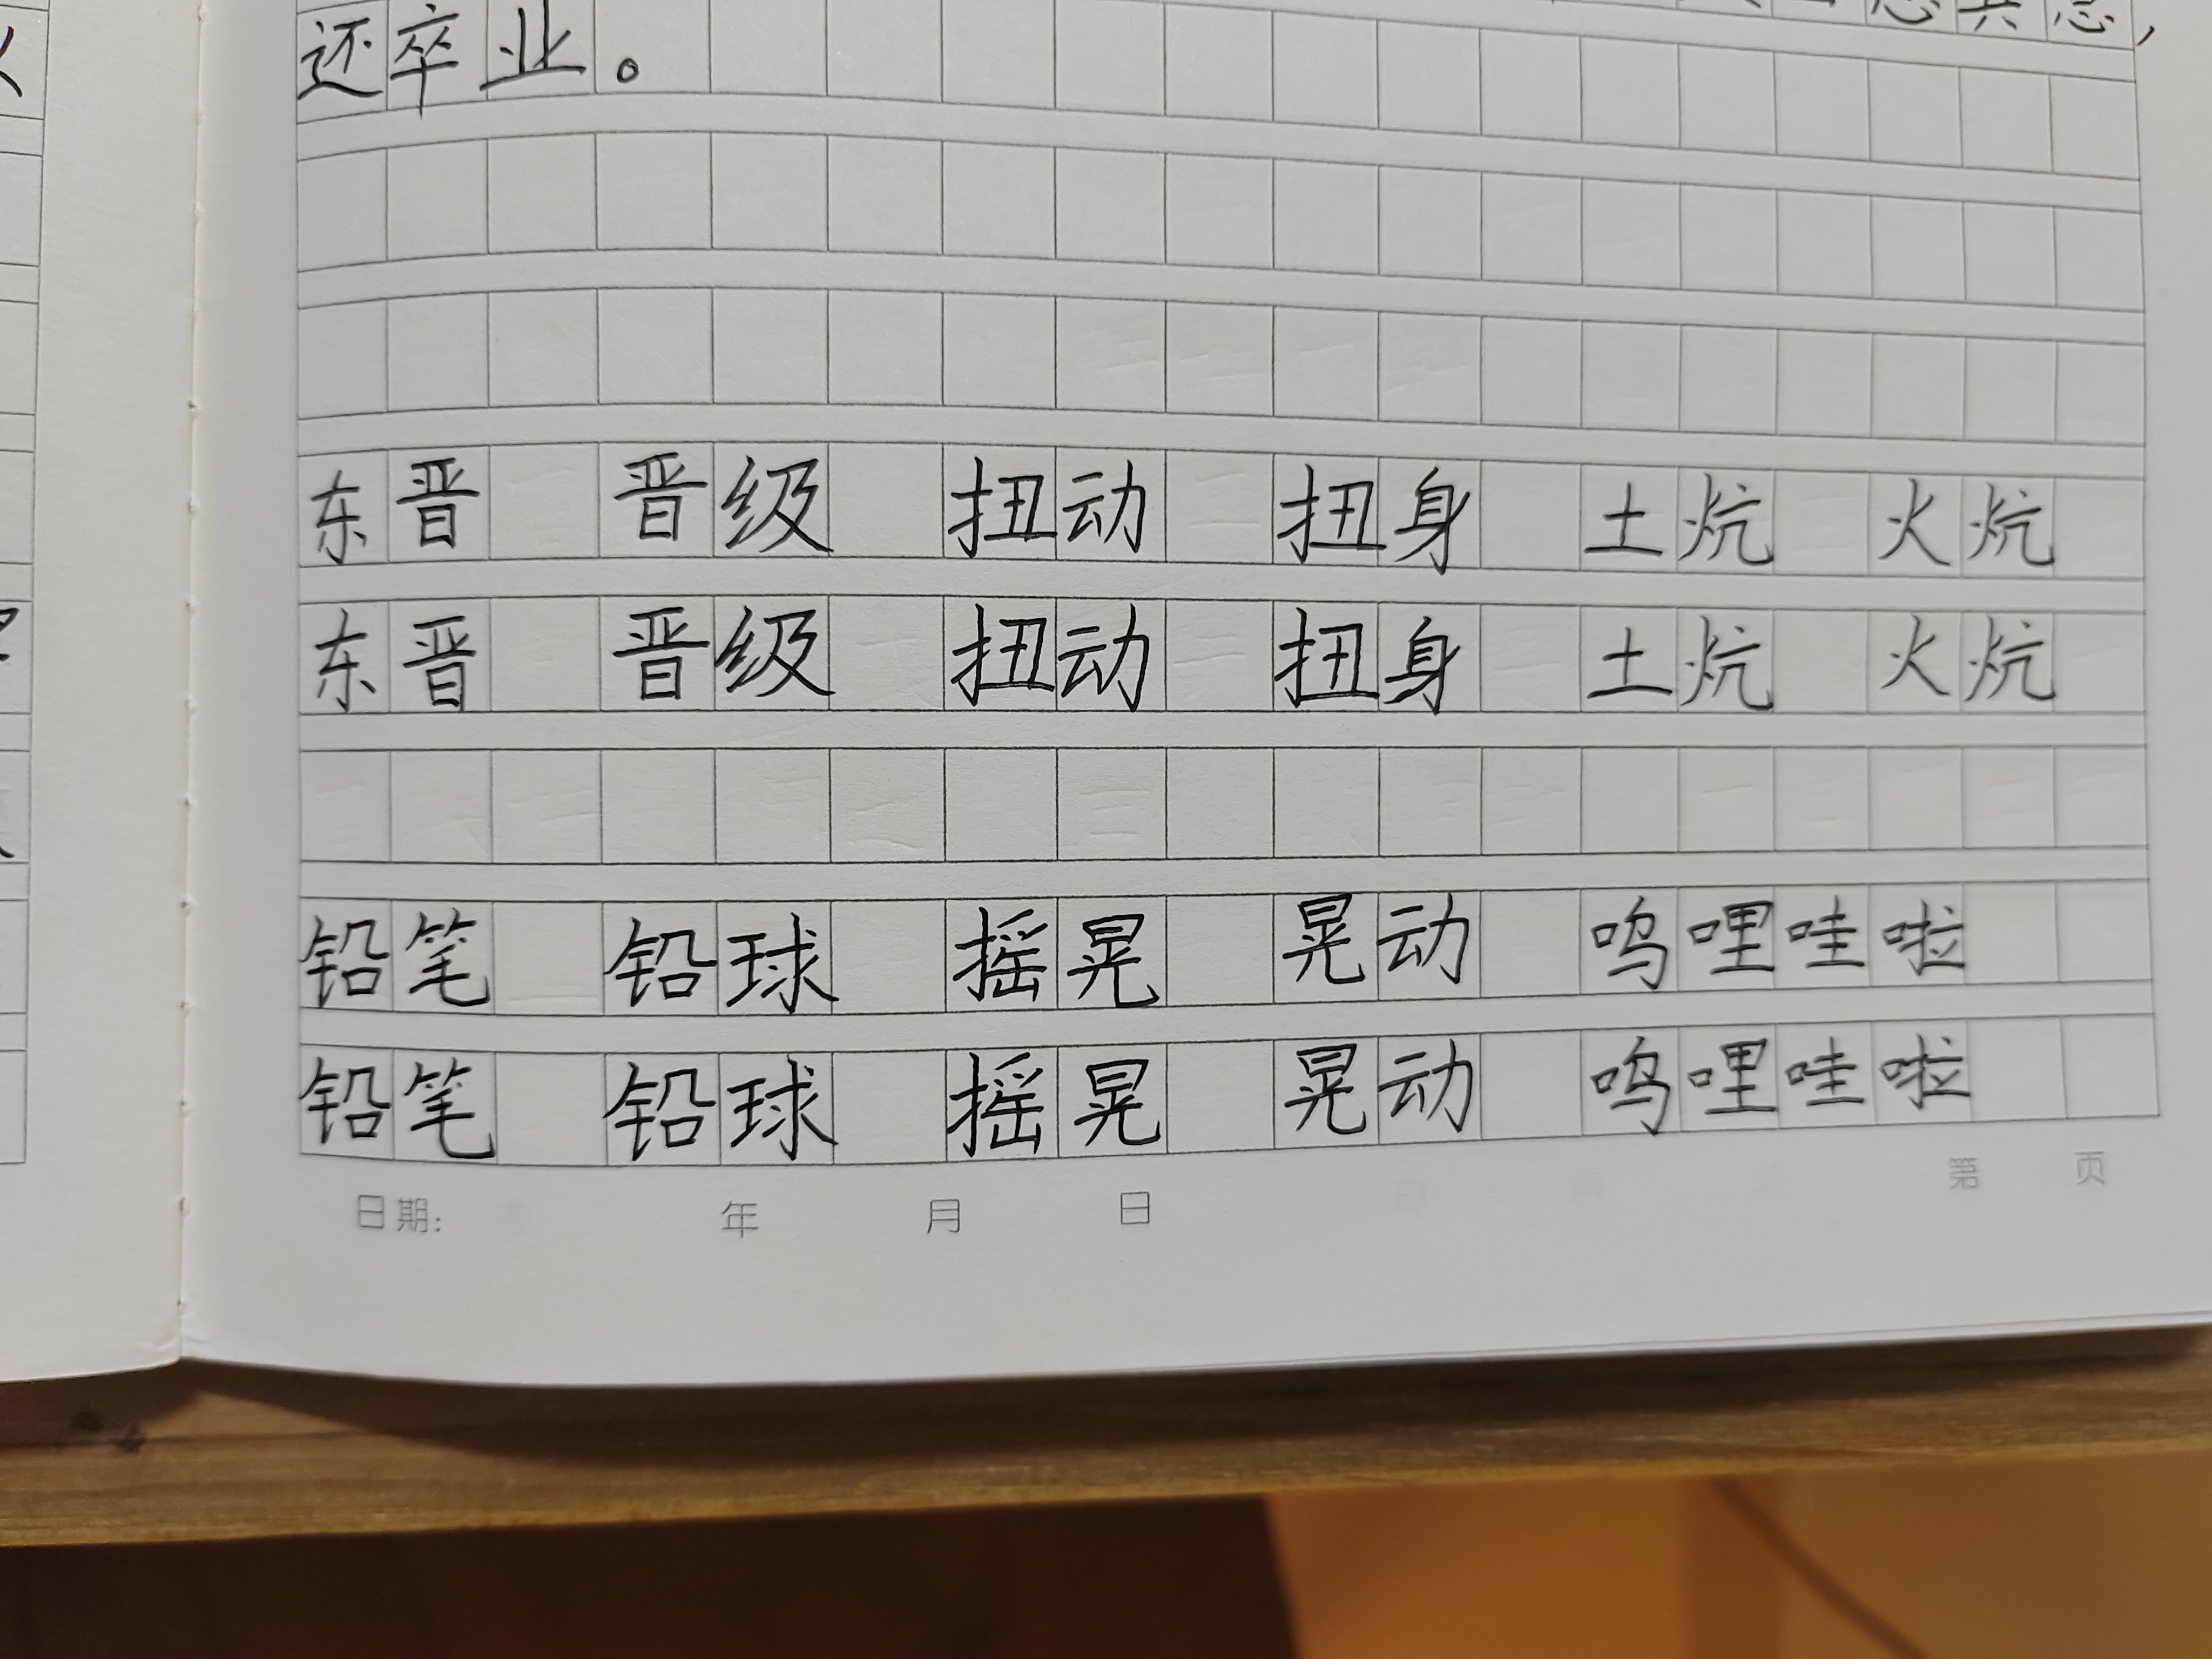 还卒业。
东晋 晋级 扭动 扭身 土炕 火炕
东晋 晋级 扭动 扭身 土炕 火炕
铅笔 铅球 摇晃 晃动 呜哩哇啦
铅笔 铅球 摇晃 晃动 呜哩哇啦
日期: 年 月 日 第 页